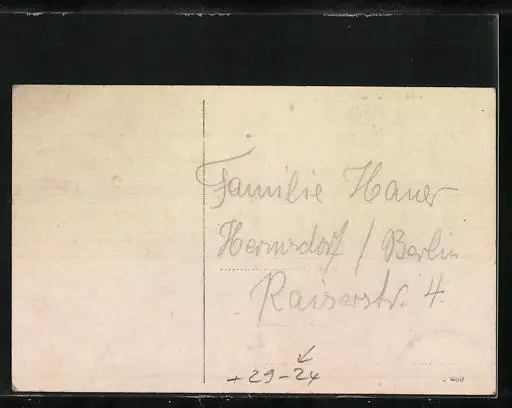 Familie Haner
Hermsdorf / Berlin
Kaiserstr. 4.
+ 29 - 24